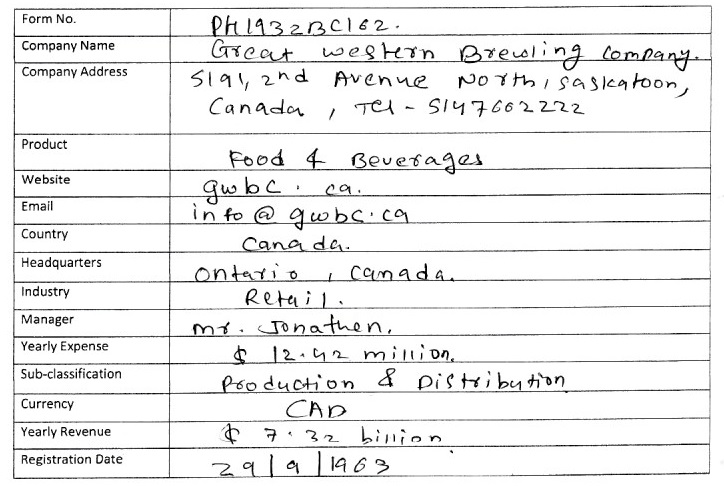 Form No. PH1932BC162.
Company Name Great western Brewling Company.
Company Address 5191, 2nd Avenue North, Saskatoon,
Canada, Tel - 5147662222
Product Food & Beverages
Website gwbc.ca.
Email info@gwbc.ca
Country Canada.
Headquarters Ontario, Canada.
Industry Retail.
Manager Mr. Jonathen.
Yearly Expense $ 12.42 million.
Sub-classification Production & Distribution
Currency CAD
Yearly Revenue $ 7.32 billion
Registration Date 29/9/1963